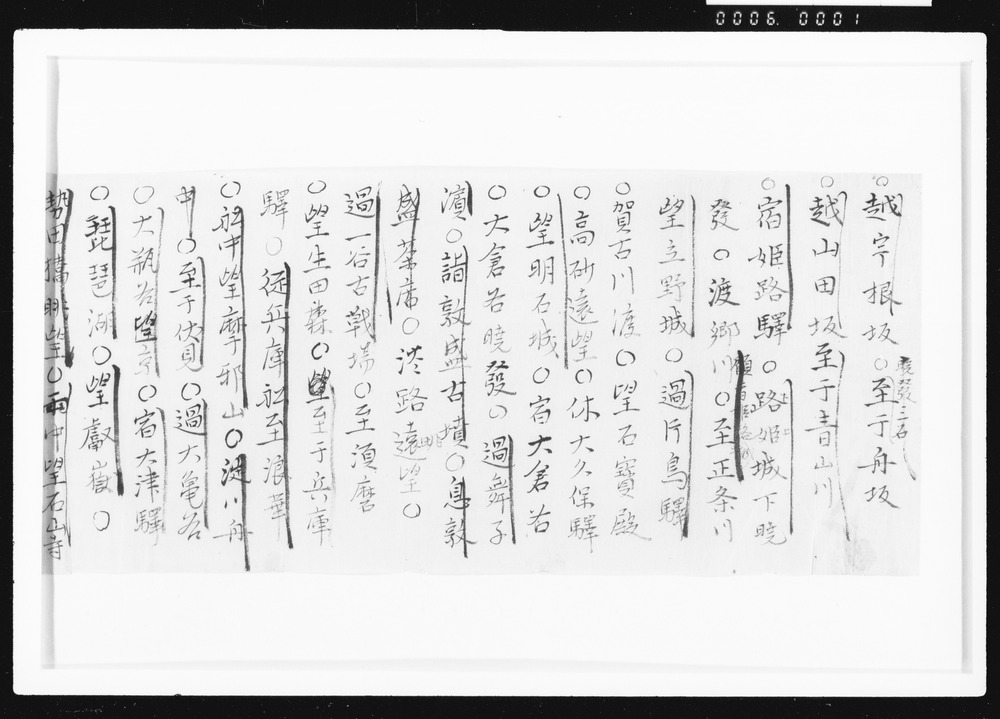 0006. 0001
○越宇根坂○至于舟坂
夜發三石
○越山田坂至于青山川
○宿姫路驛○路姫城下暁
發○渡郷川○至正条川
望立野城○過片島驛
○賀古川渡○望石寶殿
○高砂遠望○休大久保驛
○望明石城○宿大倉谷
○大倉谷暁發○過舞子
濱○詣敦盛古墳○息敦
盛茶席○淡路遠望○
過一谷古戰場○至須磨
○望生田森○望至于兵庫
驛○従兵庫舩至浪華
○舩中望摩耶山○淀川舟
中○至于伏見○過大亀谷
○大瓶谷望京○宿大津驛
○琵琶湖○望叡嶽○
勢田橋眺望○雨中望石山寺